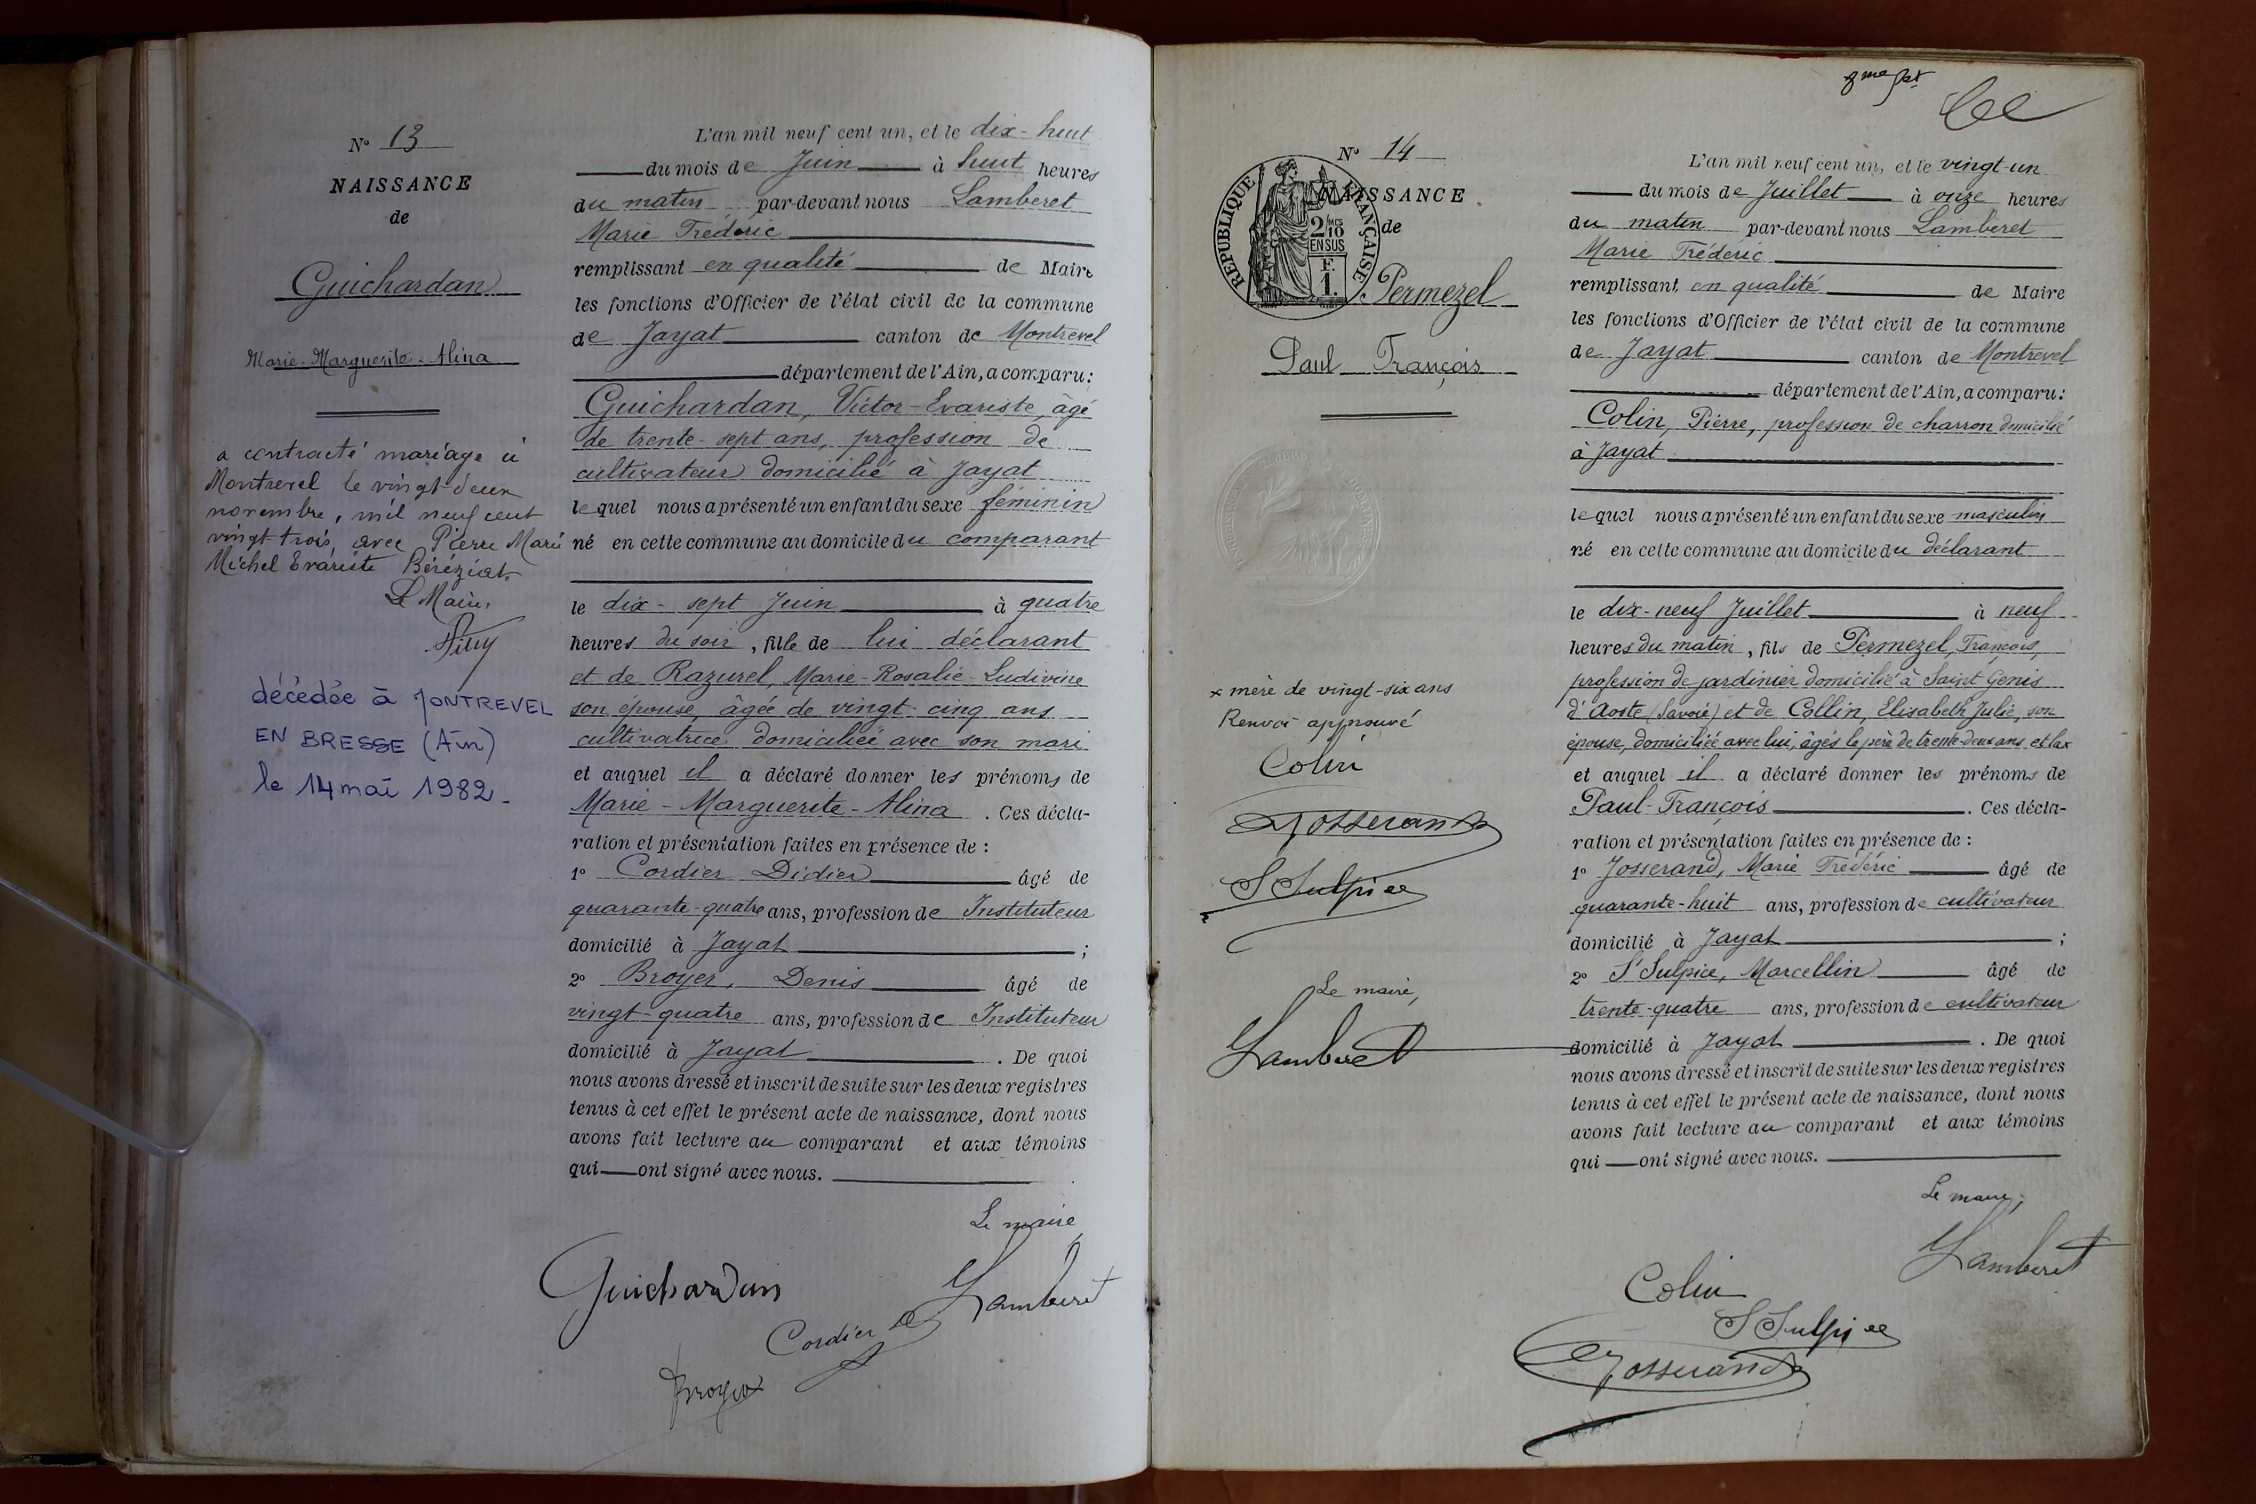 N° 13
NAISSANCE
de
Guichardan
Marie-Marguerite-Alina
a contracté mariage à
Montrevel le vingt-deux
novembre, mil neuf cent
vingt-trois, avec Pierre Marie
Michel Evariste Béréziat.
Le Maire,
décédée à MONTREVEL
EN BRESSE (Ain)
le 14 mai 1982.
L'an mil neuf cent un, et le dix-huit
du mois de Juin à huit heures
du matin par-devant nous Lamberet
Marie Frédéric
remplissant en qualité de Maire
les fonctions d'Officier de l'état civil de la commune
de Jayat canton de Montrevel
département de l'Ain, a comparu:
Guichardan, Victor-Evariste, âgé
de trente-sept ans, profession de
cultivateur domicilié à Jayat
lequel nous a présenté un enfant du sexe féminin
né en cette commune au domicile du comparant
le dix-sept Juin à quatre
heures du soir, fille de lui déclarant
et de Razurel, Marie-Rosalie-Ludivine
son épouse, âgée de vingt-cinq ans
cultivatrice domiciliée avec son mari
et auquel il a déclaré donner les prénoms de
Marie-Marguerite-Alina. Ces décla-
ration et présentation faites en présence de :
1° Cordier Didier âgé de
quarante-quatre ans, profession de Instituteur
domicilié à Jayat ;
2° Broyer, Denis âgé de
vingt-quatre ans, profession de Instituteur
domicilié à Jayat. De quoi
nous avons dressé et inscrit de suite sur les deux registres
tenus à cet effet le présent acte de naissance, dont nous
avons fait lecture au comparant et aux témoins
qui ont signé avec nous.
Le maire,
Guichardan
Lamberet
Cordier
Broyer
N° 14
NAISSANCE
de
RÉPUBLIQUE FRANÇAISE
2/10 MES
EN SUS
F.
1.
Permezel
Paul François
x mère de vingt-six ans
Renvoi approuvé
Colin
Josserand
S Sulpice
Le maire,
Lamberet
L'an mil neuf cent un, et le vingt-un
du mois de Juillet à onze heures
du matin par-devant nous Lamberet
Marie Frédéric
remplissant en qualité de Maire
les fonctions d'Officier de l'état civil de la commune
de Jayat canton de Montrevel
département de l'Ain, a comparu:
Colin, Pierre, profession de charron domicilié
à Jayat
lequel nous a présenté un enfant du sexe masculin
né en cette commune au domicile du déclarant
le dix-neuf Juillet à neuf
heures du matin, fils de Permezel, François,
profession de jardinier domicilié à Saint Genis
d'Aoste (Savoie) et de Collin, Elisabeth Julie, son
épouse, domiciliée avec lui, âgés le père de trente-deux ans et la x
et auquel il a déclaré donner les prénoms de
Paul-François. Ces décla-
ration et présentation faites en présence de :
1° Josserand, Marie Frédéric âgé de
quarante-huit ans, profession de cultivateur
domicilié à Jayat ;
2° St Sulpice, Marcellin âgé de
trente-quatre ans, profession de cultivateur
domicilié à Jayat. De quoi
nous avons dressé et inscrit de suite sur les deux registres
tenus à cet effet le présent acte de naissance, dont nous
avons fait lecture au comparant et aux témoins
qui ont signé avec nous.
Le maire,
Lamberet
Colin
S Sulpice
Josserand